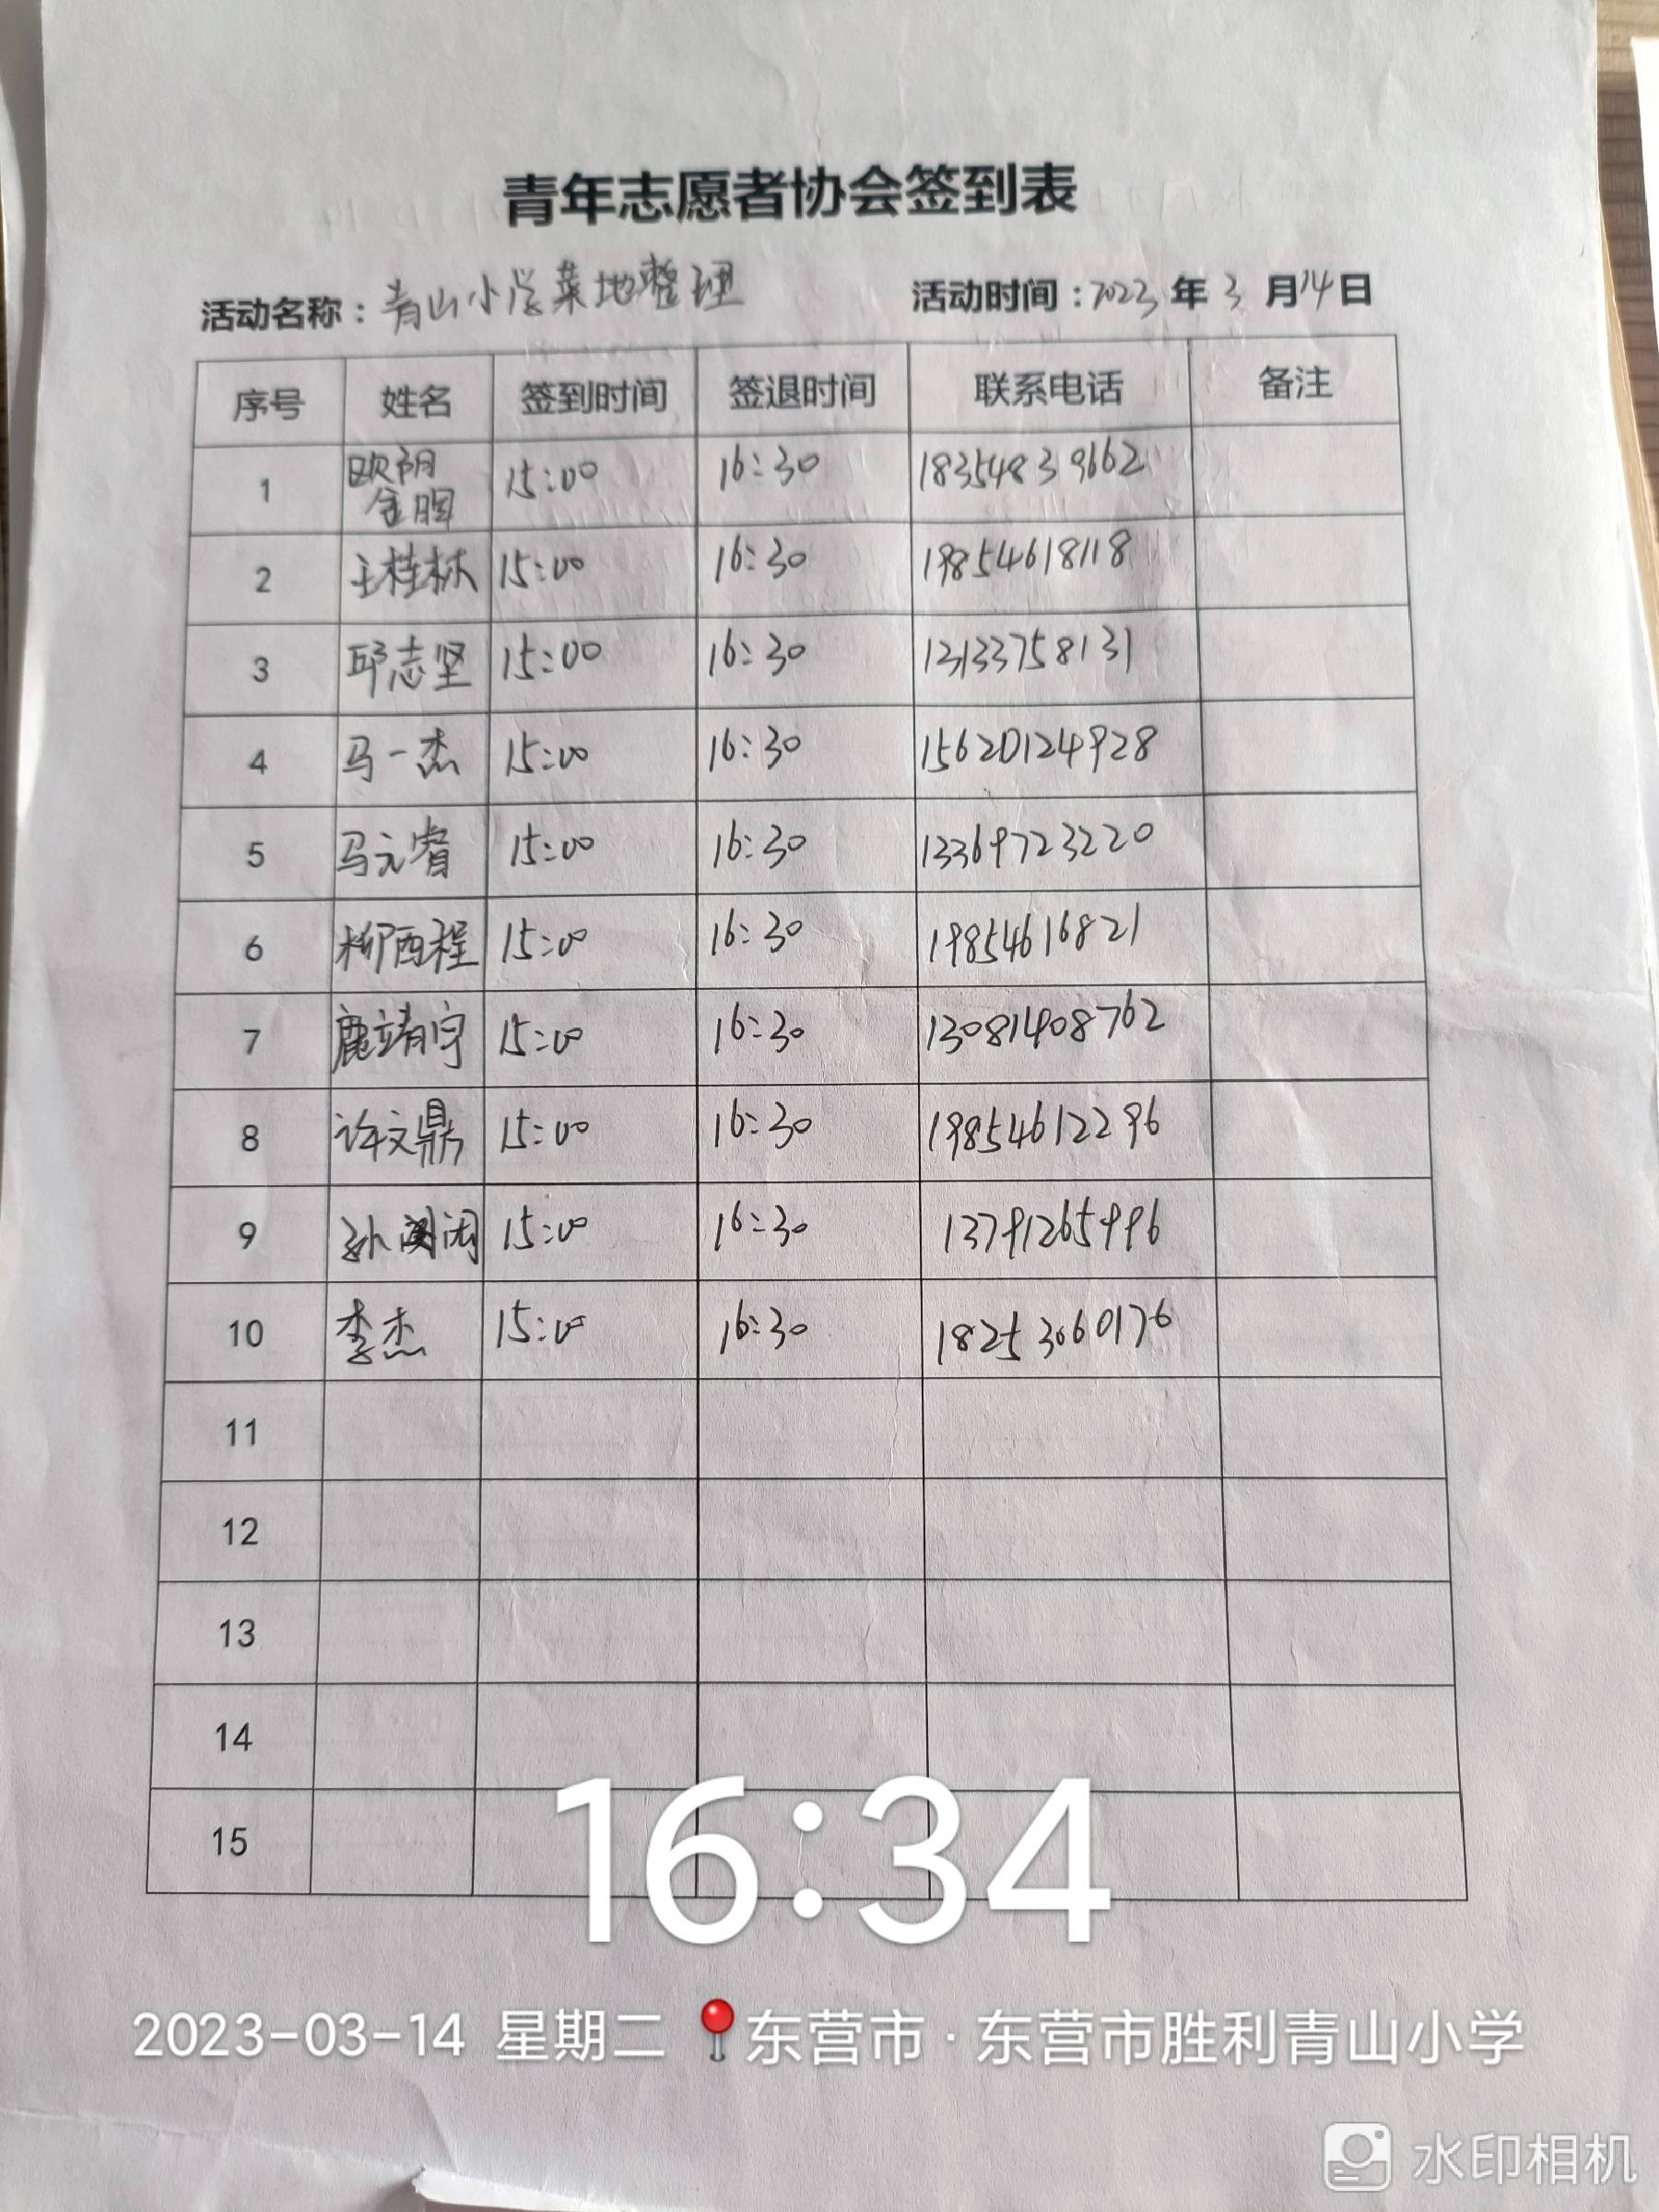 青年志愿者协会签到表
活动名称：青山小学菜地整理 活动时间：2023年3月14日
序号 姓名 签到时间 签退时间 联系电话 备注
1 欧阴 15:00 16:30 18354839662
2 王桂林 15:00 16:30 19854618118
3 邱志坚 15:00 16:30 13133758131
4 马一杰 15:00 16:30 15620124928
5 马元睿 15:00 16:30 13369723220
6 柳西程 15:00 16:30 19854616821
7 鹿靖宇 15:00 16:30 13081408762
8 许文鼎 15:00 16:30 19854612296
9 孙 15:00 16:30 13791265996
10 李杰 15:00 16:30 18253060176
11
12
13
14
15
16:34
2023-03-14 星期二 东营市·东营市胜利青山小学
水印相机